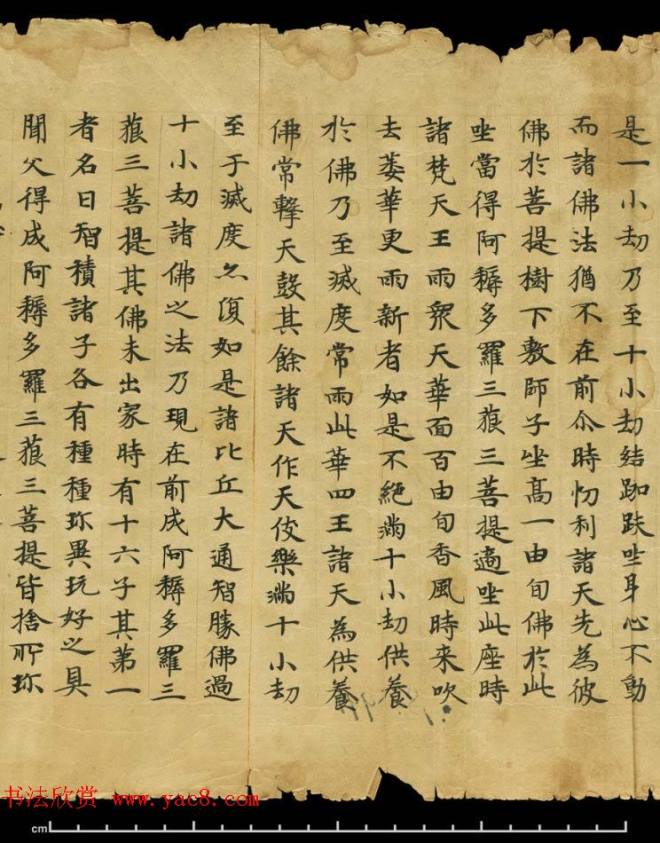 是一小劫乃至十小劫結跏趺坐身心不動
而諸佛法猶不在前尒時忉利諸天先為彼
佛於菩提樹下敷師子坐高一由旬佛於此
坐當得阿耨多羅三藐三菩提適坐此座時
諸梵天王雨衆天華面百由旬香風時来吹
去萎華更雨新者如是不絕滿十小劫供養
於佛乃至滅度常雨此華四王諸天為供養
佛常擊天鼓其餘諸天作天伎樂滿十小劫
至于滅度亦復如是諸比丘大通智勝佛過
十小劫諸佛之法乃現在前成阿耨多羅三
藐三菩提其佛未出家時有十六子其第一
者名曰智積諸子各有種種珎異玩好之具
聞父得成阿耨多羅三藐三菩提皆捨所珎
书法欣赏 www.yac8.com
cm